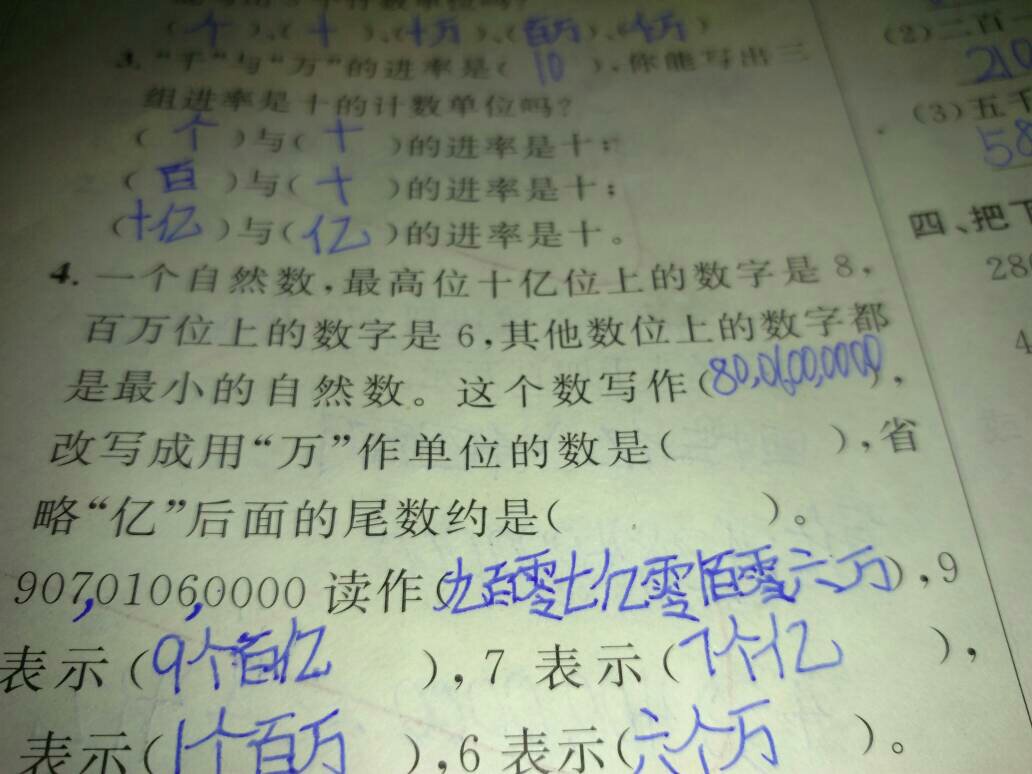 (个)、(十)、(十万)、(百万)、(千万)
3. “千”与“万”的进率是(10),你能写出三
组进率是十的计数单位吗?
(个)与(十)的进率是十;
(百)与(十)的进率是十;
(十亿)与(亿)的进率是十。
4. 一个自然数,最高位十亿位上的数字是8,
百万位上的数字是6,其他数位上的数字都
是最小的自然数。这个数写作(80,0600,0000),
改写成用“万”作单位的数是( ),省
略“亿”后面的尾数约是( )。
907,0106,0000读作(九百零七亿零一百零六万),9
表示(9个百亿),7表示(7个亿),
表示(1个百万),6表示(六个万)。
(2)二百一
210
(3)五千
58
四、把下
280
4